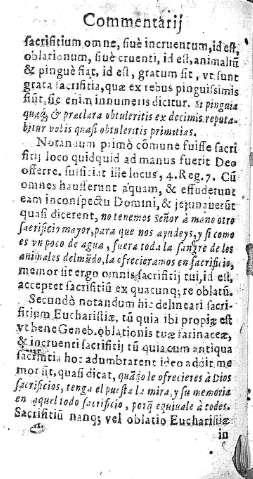 Commentarij
sacrifitium omne, siuè incruentum, id est,
oblationum, siuè cruenti, id est, animaliũ
& pinguè fiat, id est, gratum sit, vt sunt
grata sacrifitia, quæ ex rebus pinguissimis
fiũt, sic enim in numeris dicitur. Si pinguia
quæq; & præclara obtuleritis ex decimis reputa-
bitur vobis quasi obtuleritis primitias.
Notandum primò cõmune fuisse sacri
fitij loco quidquid ad manus fuerit Deo
offerre, sufitiat ille locus, 4. Reg. 7. Cũ
omnes hausserunt aquam, & effuderunt
eam in conspectu Domini, & jejunauerũt
quasi dicerent, no tenemos señor à mano otro
sacrifício mayor, para que nos ayudeys, y si como
es vn poco de agua, fuera toda la sangre de los
animales del mũdo, la ofrecieramos en sacrificio,
memor sit ergo omnis sacrifitij tui, id est,
acceptet sacrifitiũ ex quacunq; re oblatũ.
Secundò notandum hìc delineari sacri-
fitium Eucharistiæ, tũ quia ibi propiæ est
vt bene Geneb. oblationis tuæ farinaceæ,
& incruenti sacrifitij tũ quia cum antiqua
sacrifitia hoc adumbrarent ideo addit me
mor sit, quasi dicat, quãdo le ofrecieres à Dios
sacrificios, tenga el puesta la mira, y su memoria
en aquel todo sacrificio, porq̃ equiuale à todos.
Sacrifitiũ nanq; vel oblatio Eucharistiæ
in